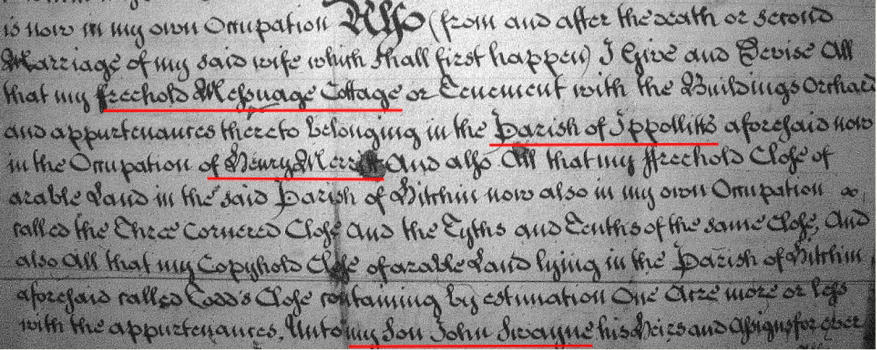 is now in my own Occupation Also (from and after the death or second
Marriage of my said wife which shall first happen) I Give and Devise All
that my freehold Messuage Cottage or Tenement with the Buildings Orchard
and appurtenances thereto belonging in the Parish of Ippollitts aforesaid now
in the Occupation of Henry And also All that my ffreehold Close of
arable Land in the said Parish of Hitchin now also in my own Occupation
called the Three Cornered Close And the Tyths and Tenths of the same Close, And
also All that my Copyhold Close of arable Land lying in the Parish of Hitchin
aforesaid called Cadd's Close containing by estimation One Acre more or less
with the appurtenances, Unto my Son John Swayne his Heirs and Assigns for ever